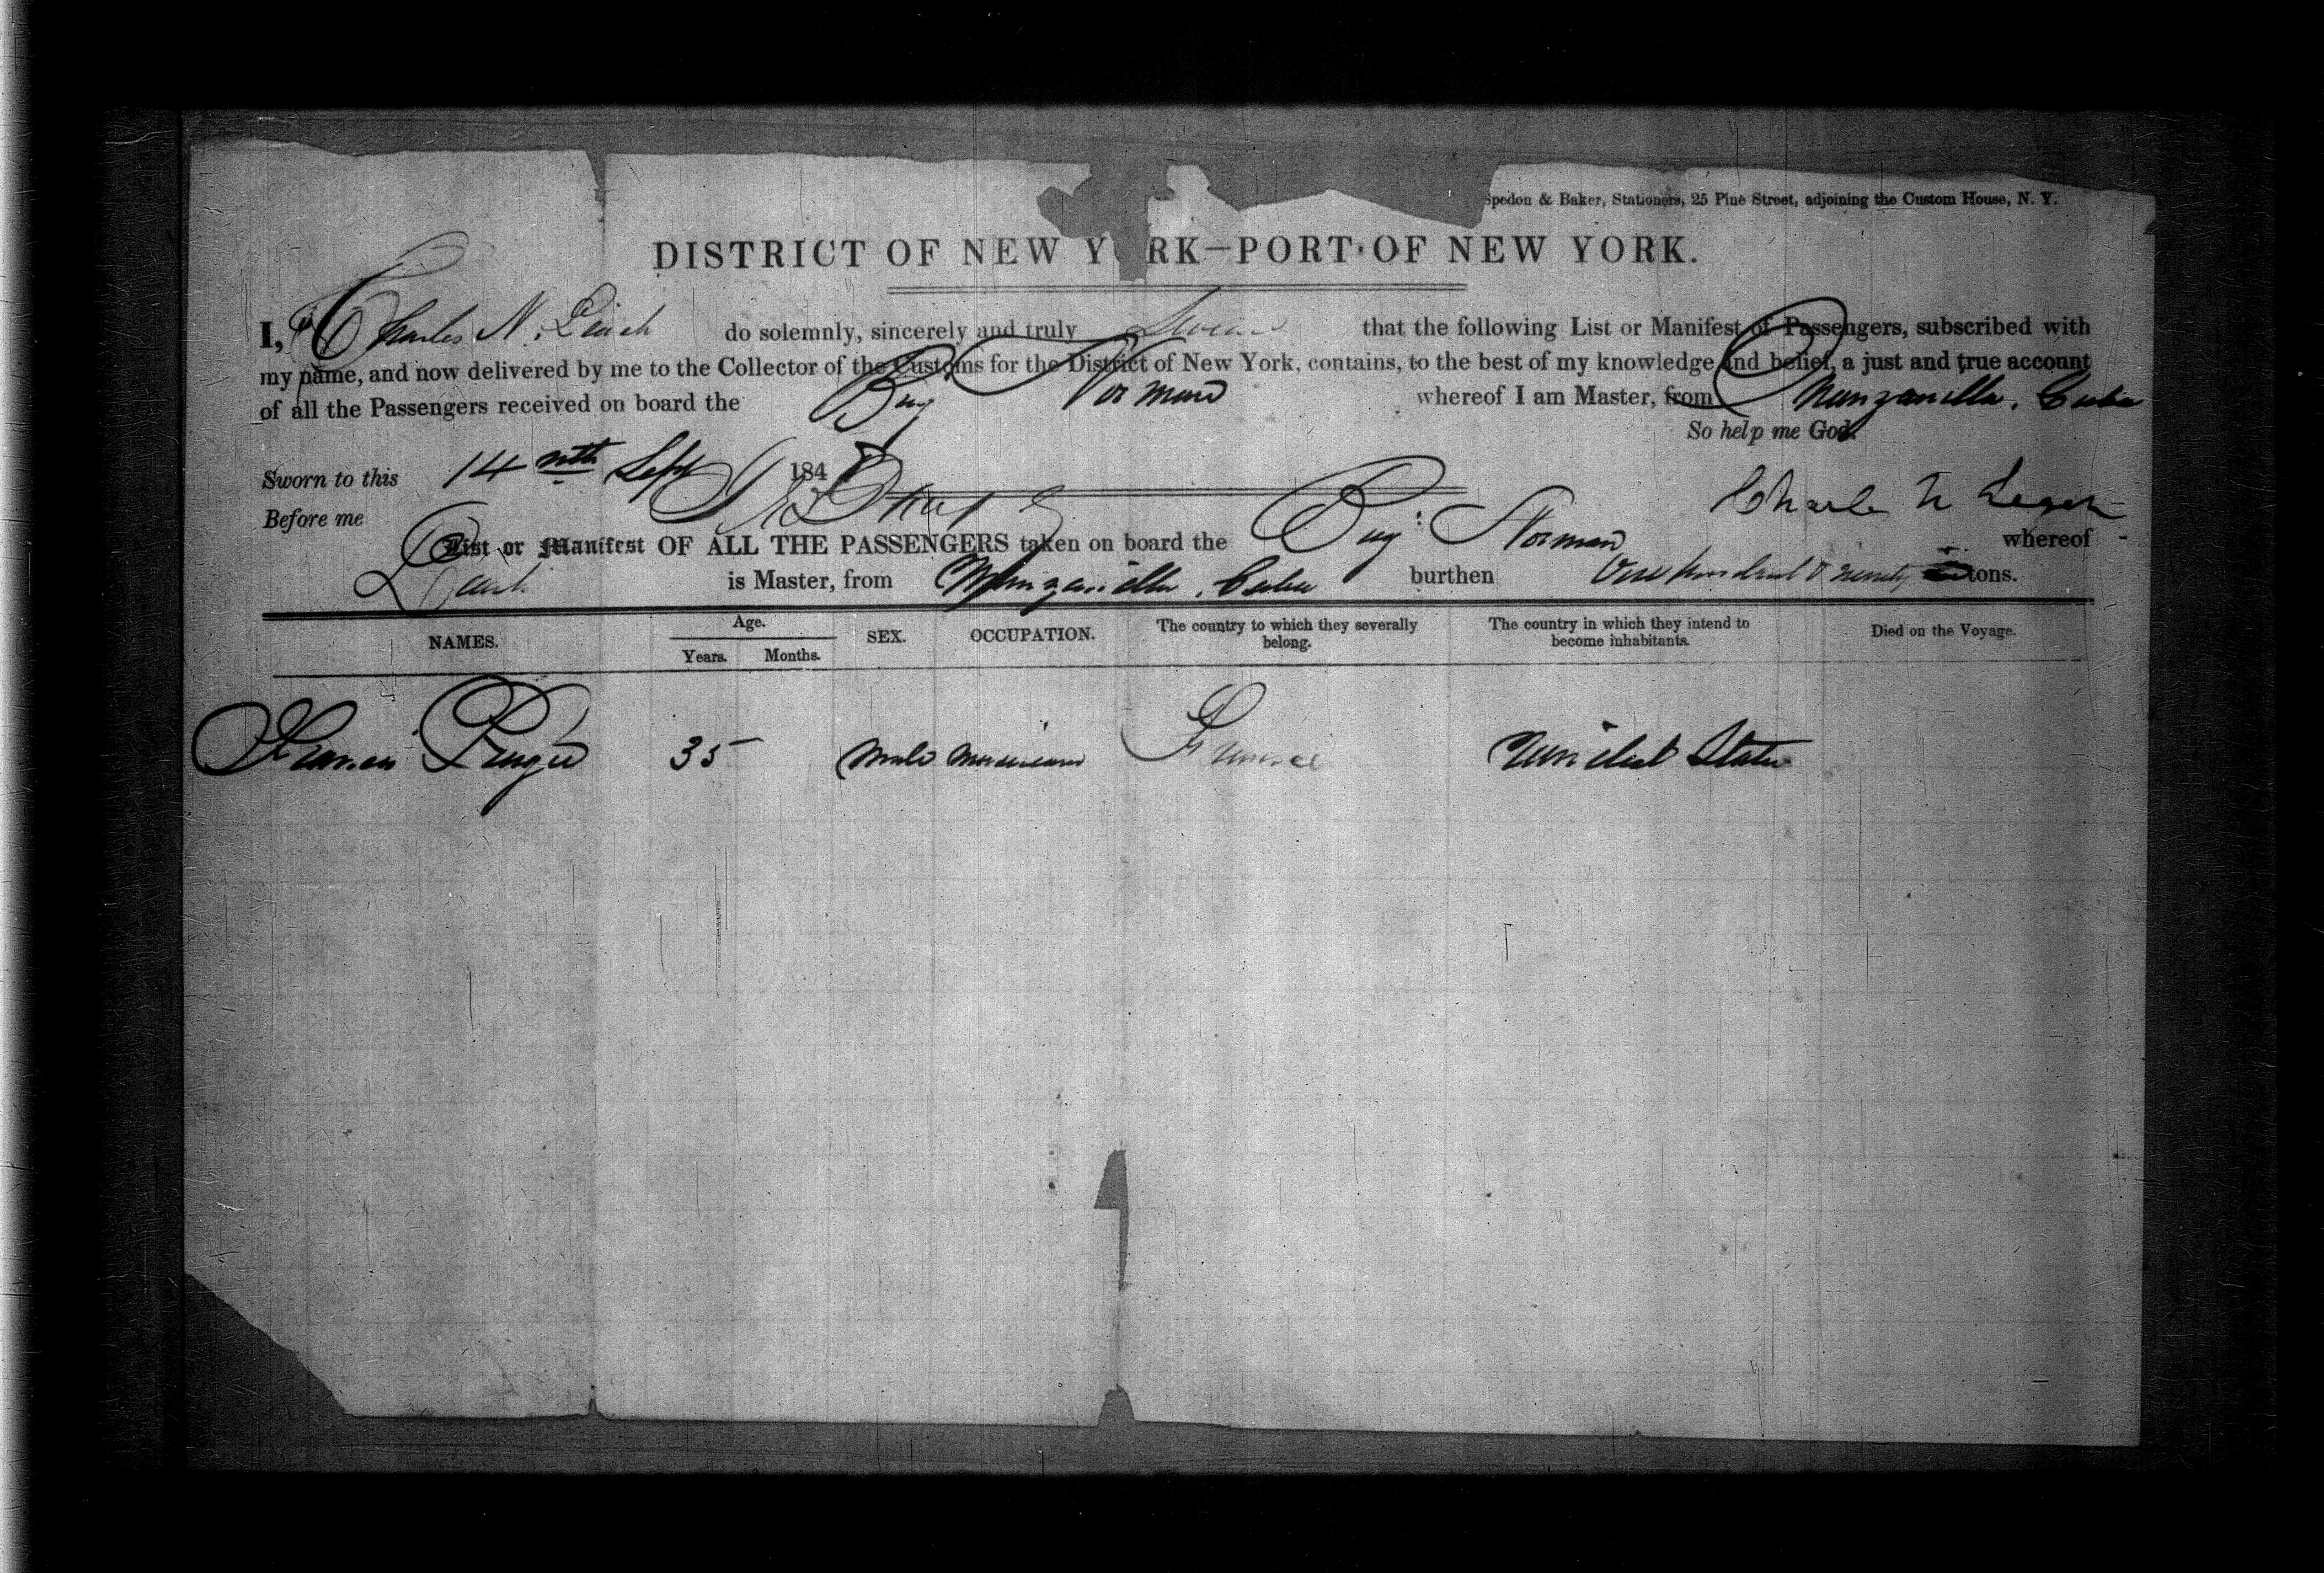 Spedon & Baker, Stationers, 25 Pine Street, adjoining the Custom House, N. Y.
DISTRICT OF NEW Y RK—PORT OF NEW YORK.
I, Charles N. Leach do solemnly, sincerely and truly Swear that the following List or Manifest of Passengers, subscribed with
my name, and now delivered by me to the Collector of the Customs for the District of New York, contains, to the best of my knowledge and belief, a just and true account
of all the Passengers received on board the Brig Norman whereof I am Master, from Manzanilla, Cuba
So help me God.
Sworn to this 14 Sept 184
Before me
Charles N
List or Manifest OF ALL THE PASSENGERS taken on board the Brig Norman whereof
Leach is Master, from Manzanilla, Cuba burthen One hundred & tons.
NAMES. Age. Years. Months. SEX. OCCUPATION. The country to which they severally belong. The country in which they intend to become inhabitants. Died on the Voyage.
Francis 35 Male France United States